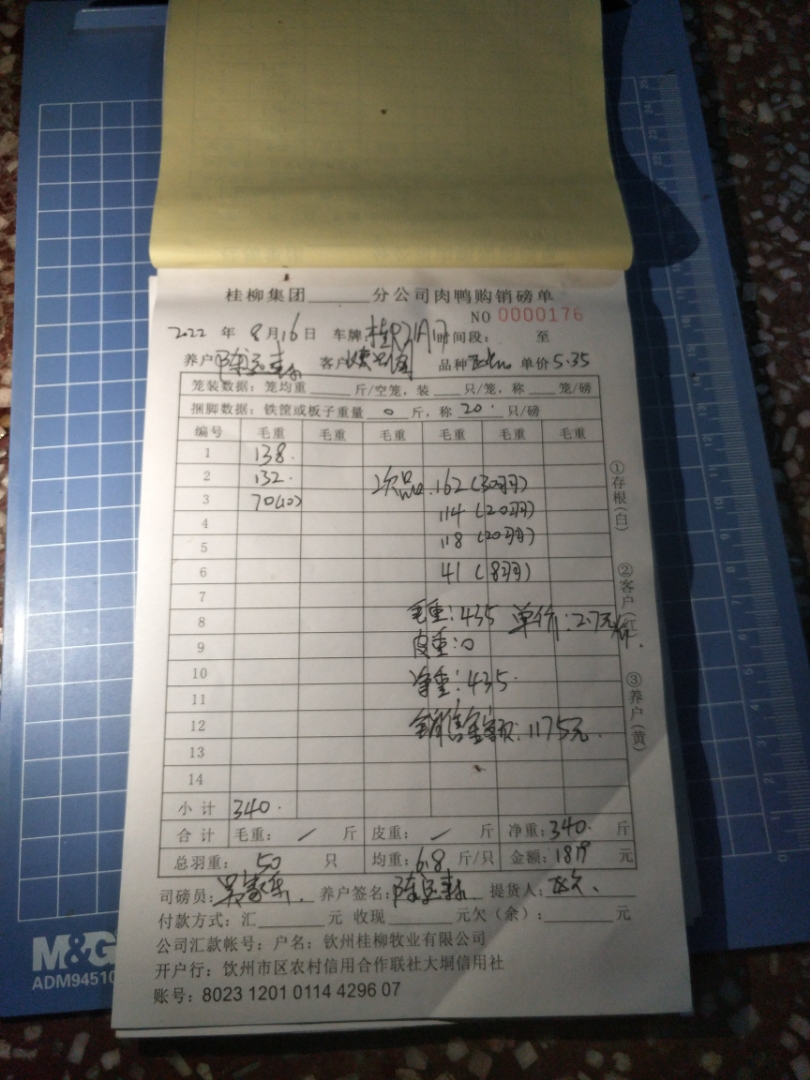 桂柳集团______分公司肉鸭购销磅单
NO 0000176
2022 年 8月16日 车牌: 时间段: 至
养户 客户 品种 单价5.35
笼装数据: 笼均重____斤/空笼, 装___只/笼, 称___笼/磅
捆脚数据: 铁筐或板子重量 0 斤, 称 20 只/磅
编号 毛重 毛重 毛重 毛重 毛重 毛重
1 138.
2 132. 次品.162(30羽)
3 70(10)
114 (20羽)
4
118 (20羽)
5
6 41 (8羽)
7
毛重:435 单价:2.7元
8
9 皮重:0
10 净重:435.
11
12 销售金额:1175元.
13
14
小计 340.
合计 毛重: / 斤 皮重: / 斤 净重:340. 斤
总羽重: 50 只 均重:6.8 斤/只 金额:1819 元
司磅员: 养户签名: 提货人:
付款方式: 汇______元 收现______元欠(余):______元
公司汇款帐号: 户名: 钦州桂柳牧业有限公司
开户行: 饮州市区农村信用合作联社大垌信用社
账号: 8023 1201 0114 4296 07
①存根(白)
②客户(红)
③养户(黄)
M&G
ADM9451